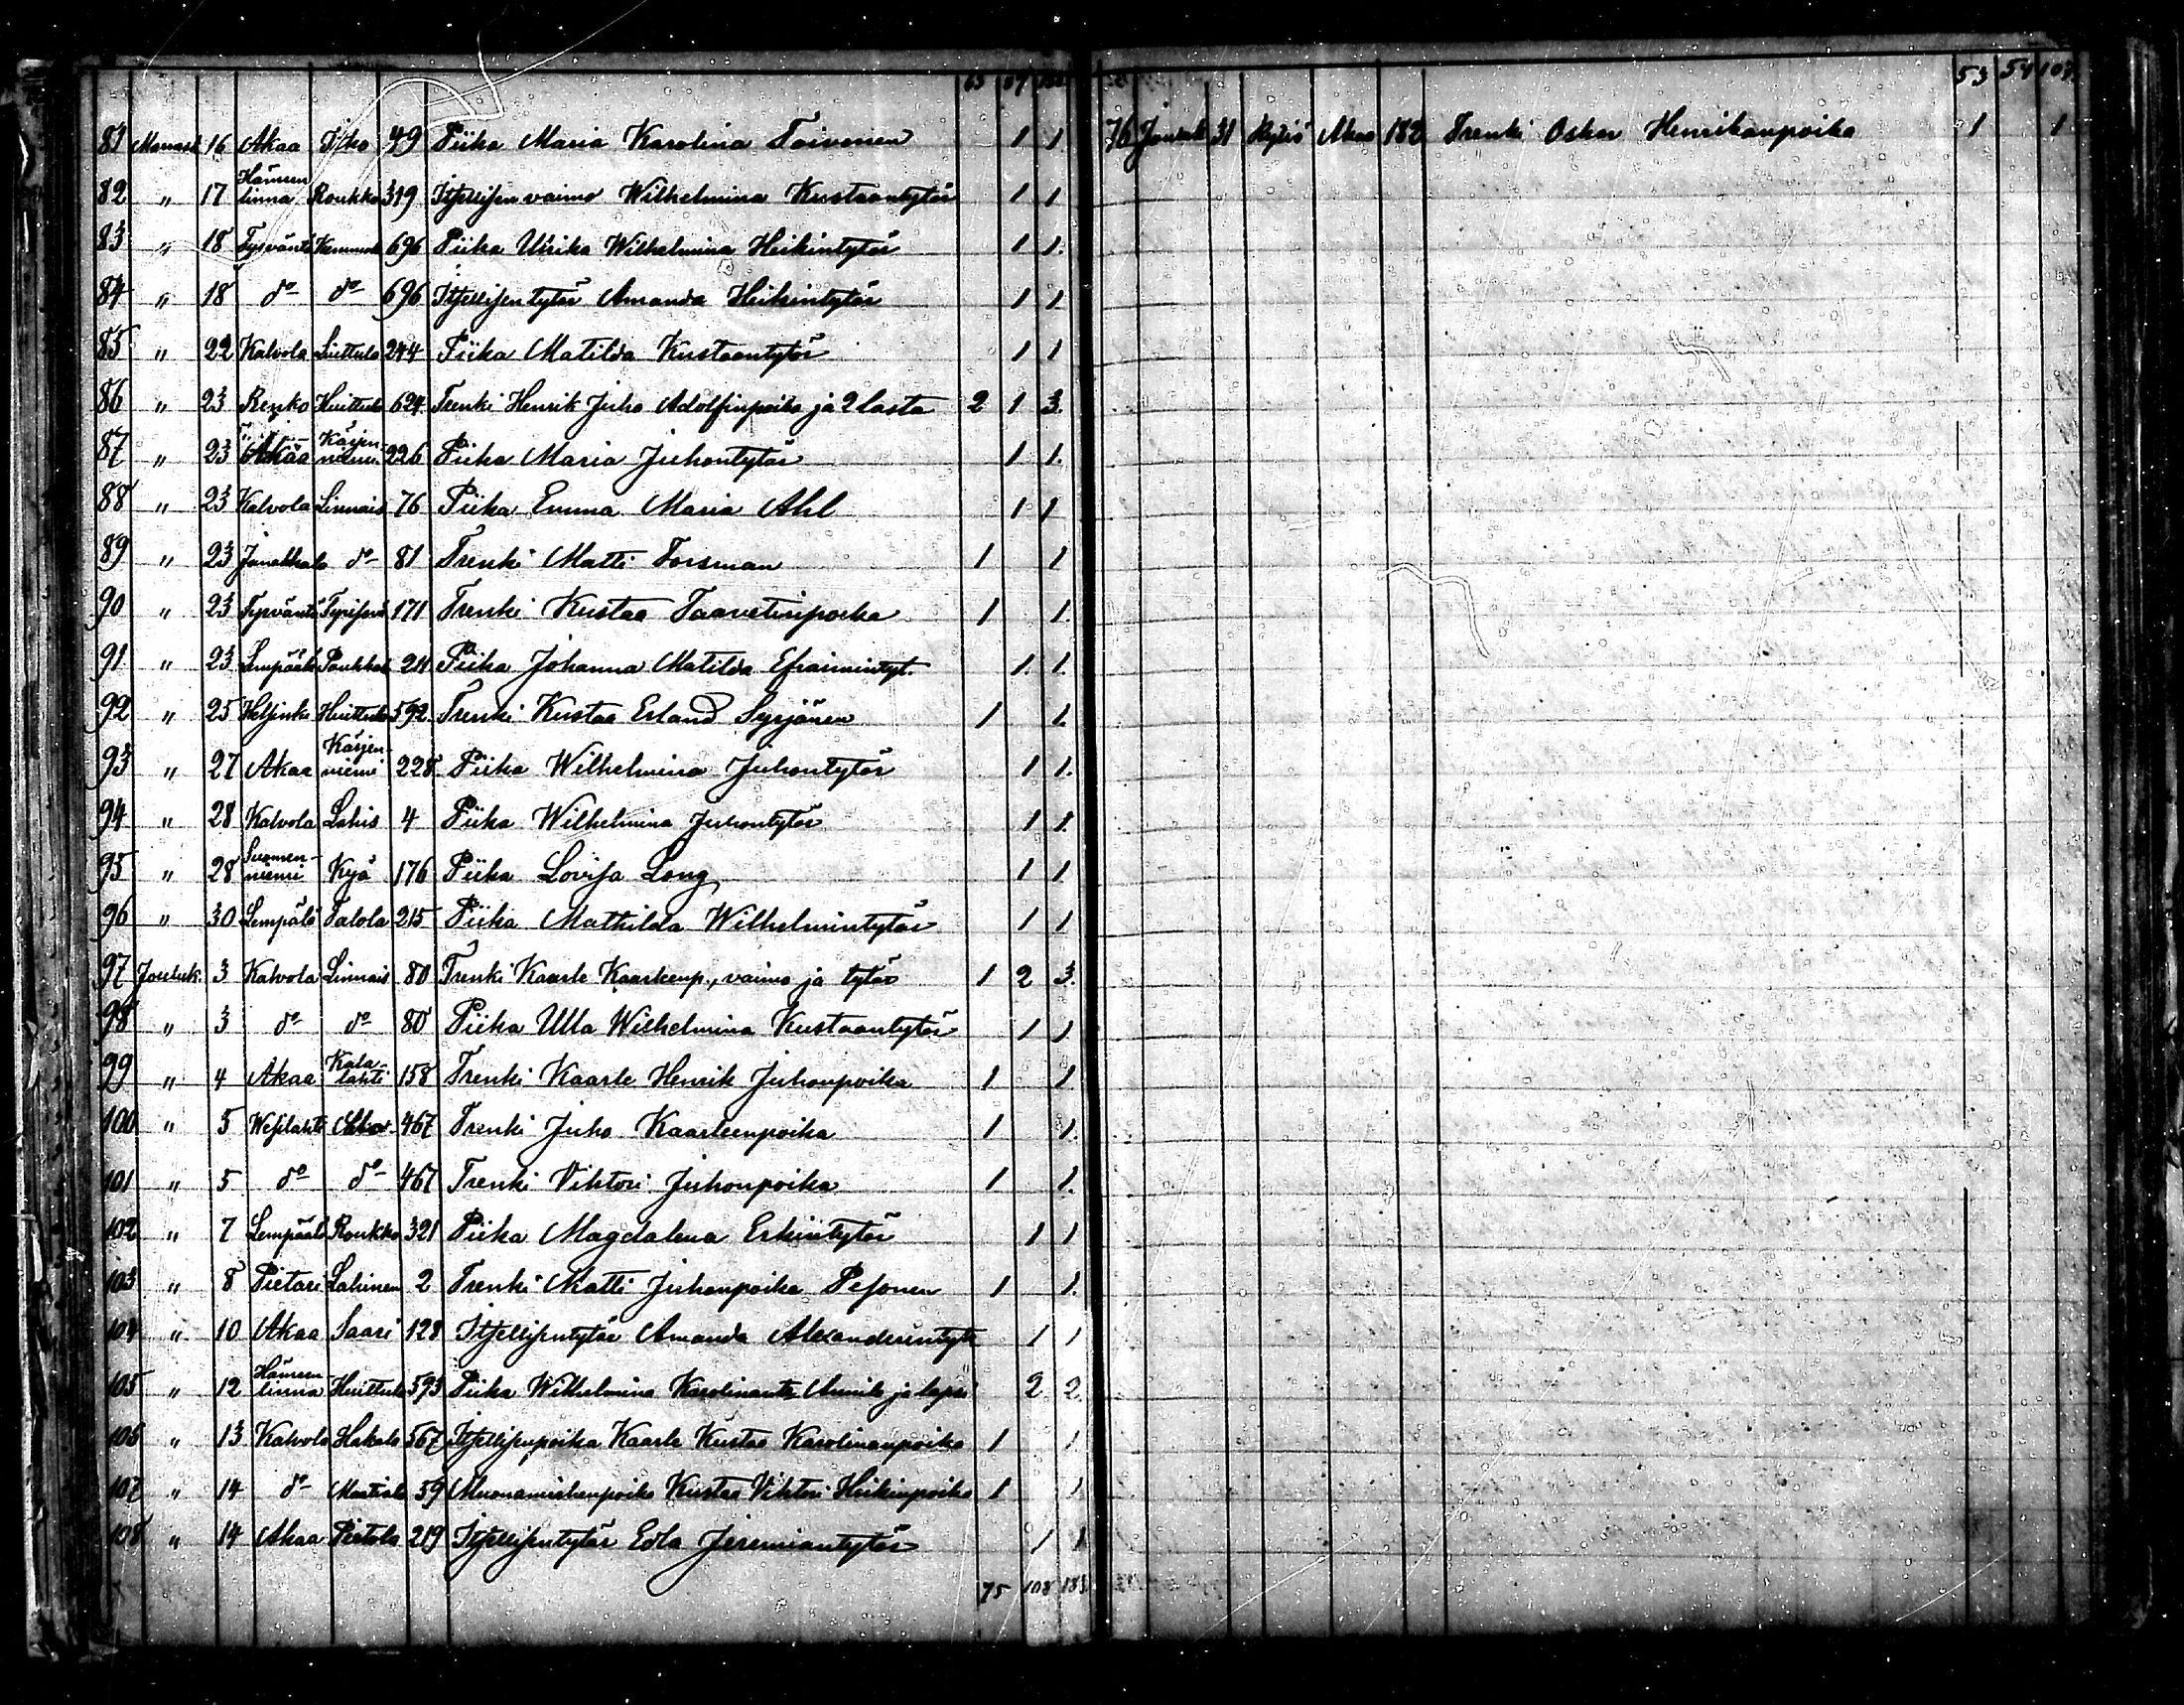 63
81 Marrask. 16 Akaa Itko 49 Piika Maria Karolina Toivonen 1 1
82 " 17 Hämeenlinna Roukko 319 Itsellisen vaimo Wilhelmina Kustaantytär 1 1
83 " 18 Tyrväntö 696 Piika Ulrika Wilhelmina Heikintytär 1 1.
84 " 18 do do 696 Itsellisen tytär Amanda Heikintytär 1 1
85 " 22 Kalvola 244 Piika Matilda Kustaantytär 1 1
86 " 23 Renko Huittula 624 Trenki Henrik Juho Adolfinpoika ja 2 lasta 2 1 3.
87 " 23 Akaa Kärjenniemi 226 Piika Maria Juhontytär 1 1.
88 " 23 Kalvola Linnais 76 Piika Emma Maria Ahl 1 1
89 " 23 Janakkala do 81 Trenki Matti Forsman 1 1
90 " 23 Tyrväntö 171 Trenki Kustaa Taavetinpoika 1 1.
91 " 23 Lempäälä 211 Piika Johanna Matilda Efraimintyt. 1. 1.
92 " 25 Helsinki Huittula 592 Trenki Kustaa Erland Syrjänen 1 1.
93 " 27 Akaa Kärjenniemi 228 Piika Wilhelmina Juhontytär 1 1.
94 " 28 Kalvola Lahis 4 Piika Wilhelmina Juhontytär 1 1.
95 " 28 Suomenniemi 176 Piika Lovisa Long 1 1
96 " 30 Lempälä Talola 215 Piika Mathilda Wilhelmintytär 1 1
97 Jouluk. 3 Kalvola Linnais 80 Trenki Kaarle Kaarleenp., vaimo ja tytär 1 2 3.
98 " 3 do do 80 Piika Ulla Wilhelmina Kustaantytär 1 1
99 " 4 Akaa Kalalahti 158 Trenki Kaarle Henrik Juhonpoika 1 1
100 " 5 Wesilahti 467 Trenki Juho Kaarleenpoika 1 1.
101 " 5 do do 467 Trenki Viktori Juhonpoika 1 1.
102 " 7 Lempäälä Roukko 321 Piika Magdalena Erkintytär 1 1
103 " 8 Pietari Lahinen 2 Trenki Matti Juhonpoika Pesonen 1 1.
104 " 10 Akaa Saari 128 Itsellisentytär Amanda Alexanderintytr 1 1
105 " 12 Hämeenlinna Huittula 593 Piika Wilhelmina ja lapsi 2 2.
106 " 13 Kalvola Hakala 567 Itsellisenpoika Kaarle Kustaa Karolinanpoika 1 1
107 " 14 do 59 Muonamiehenpoika Kustaa Viktori Heikinpoika 1 1
108 " 14 Akaa 219 Itsellisentytär Edla Jeremiantytär 1 1
75 108 183
53 54 107.
76 Jouluk 31 Kylis Akaa 182 Trenki Oskar Henrikanpoika 1 1